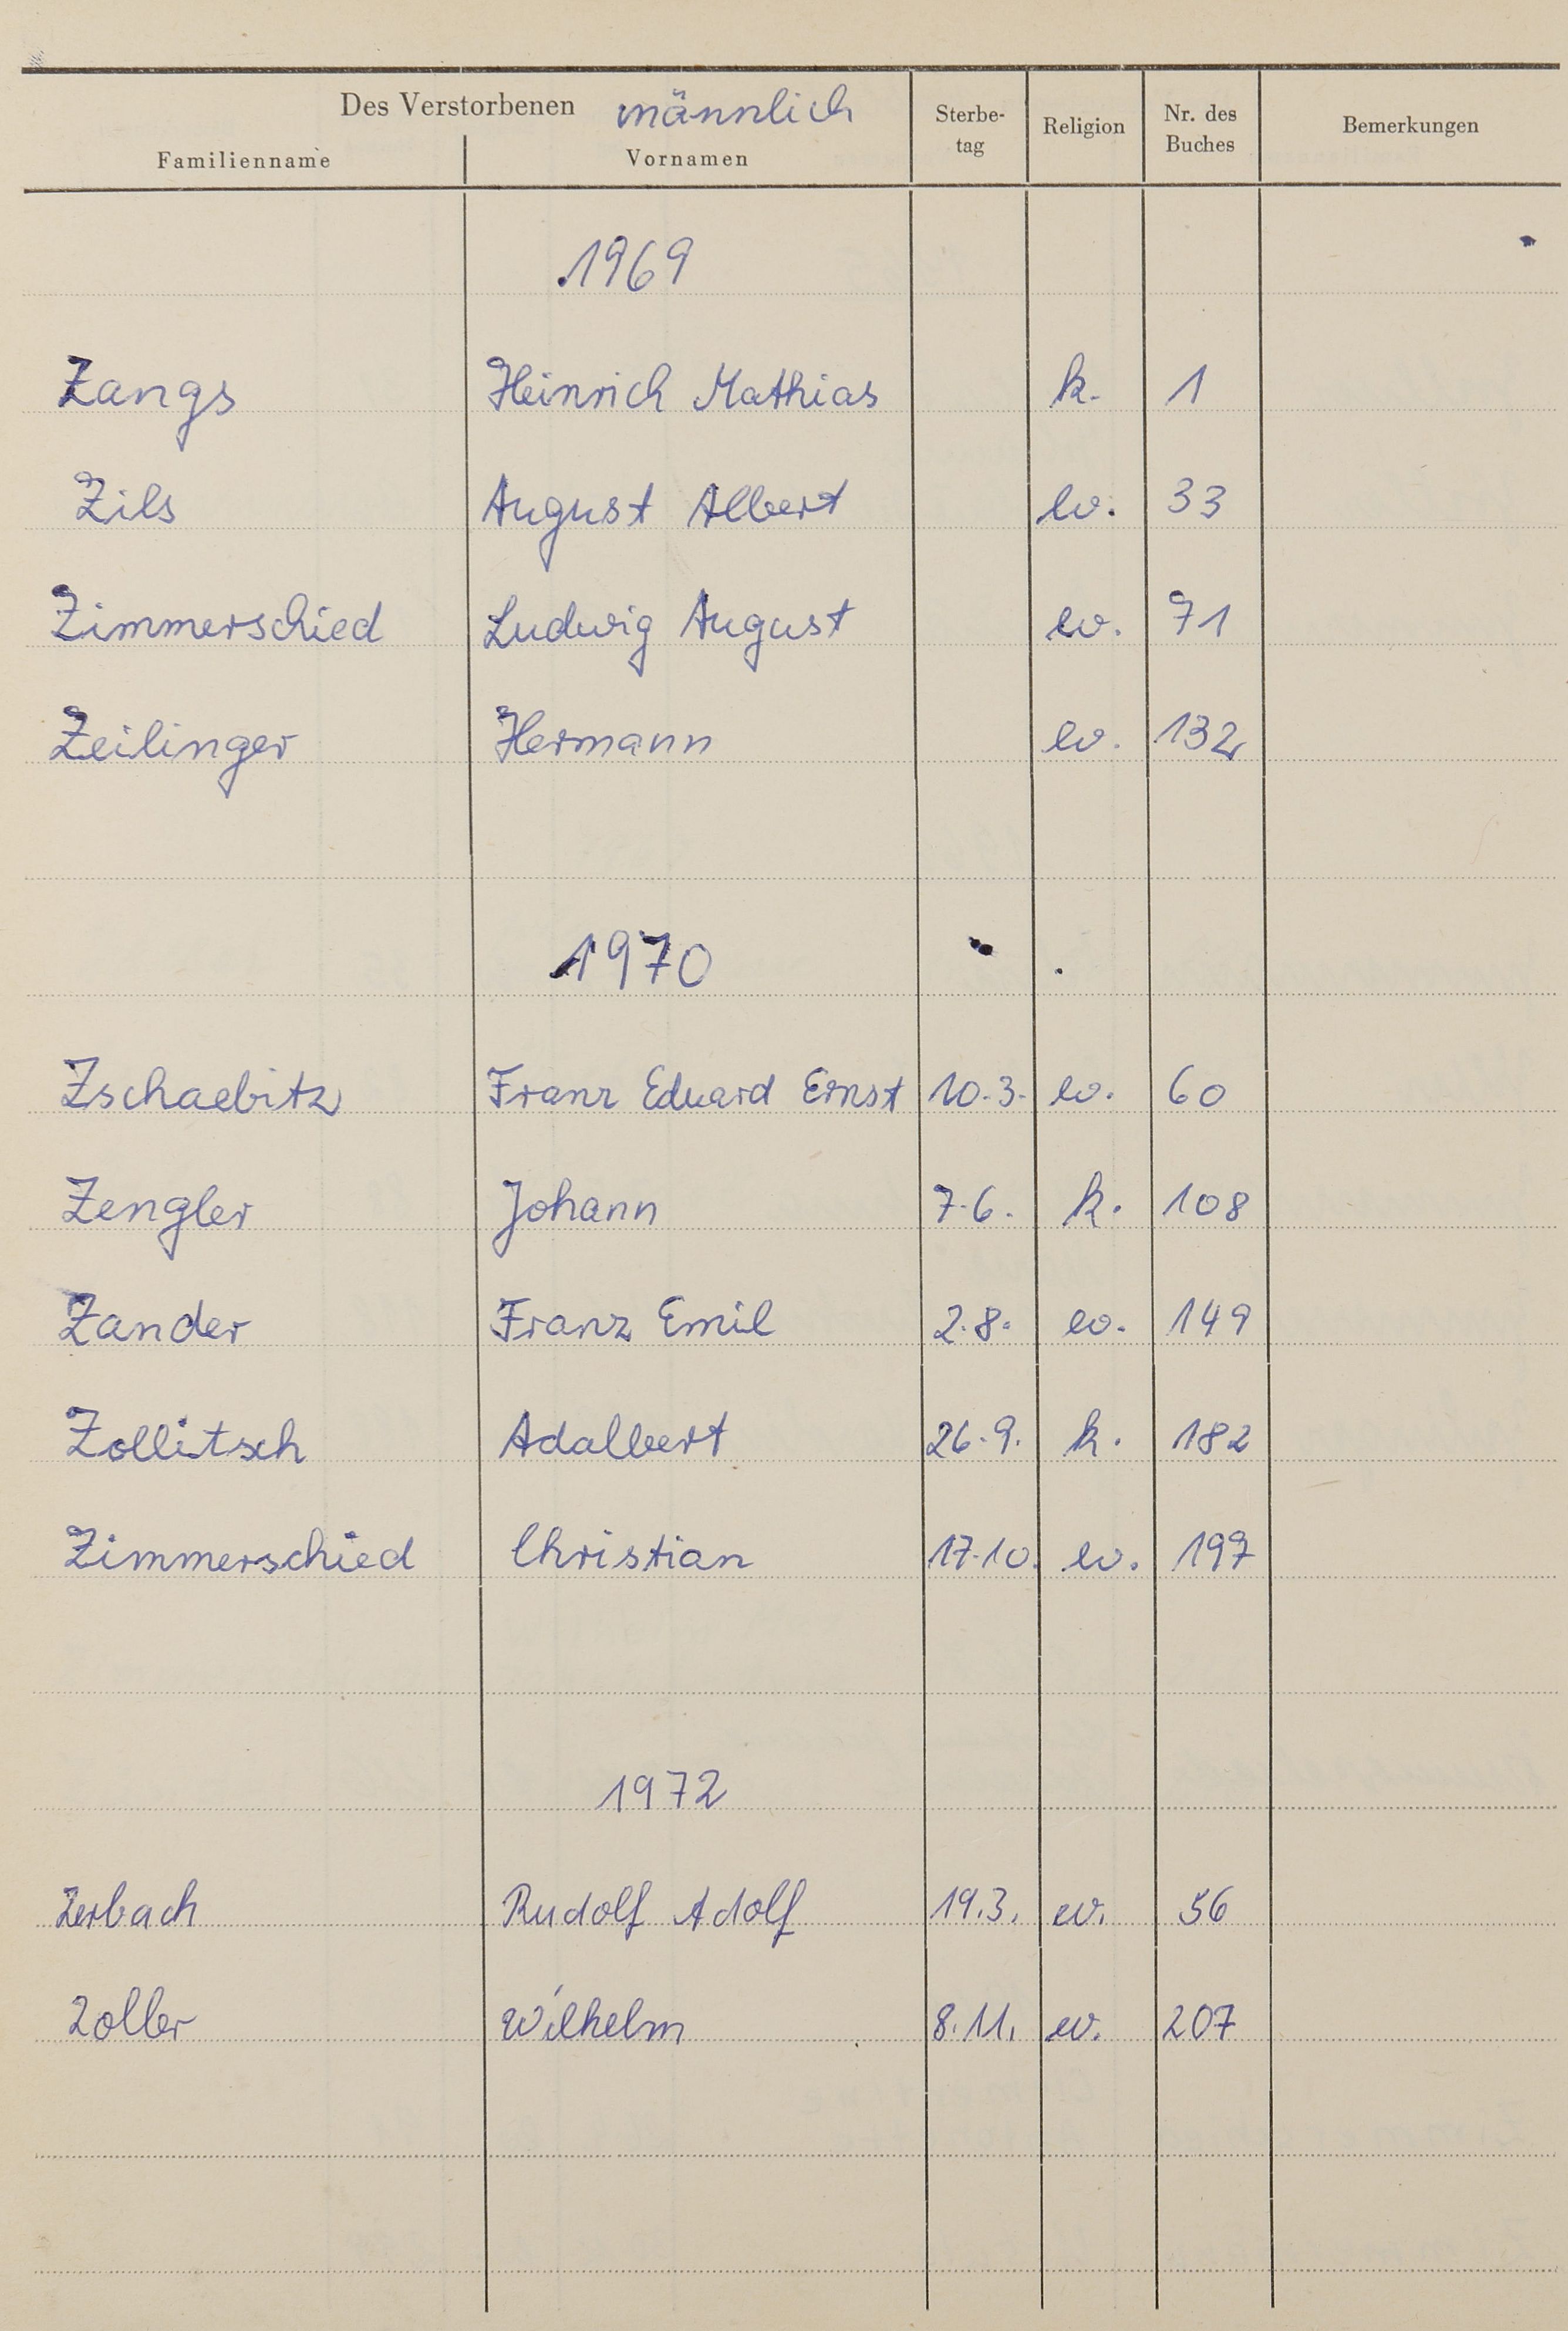 Des Verstorbenen männlich
Familienname Vornamen Sterbe-tag Religion Nr. des Buches Bemerkungen
1969
Zangs Heinrich Mathias k. 1
Zils August Albert ev. 33
Zimmerschied Ludwig August ev. 71
Zeilinger Hermann ev. 132
1970
Zschaebitz Franz Eduard Ernst 10.3. ev. 60
Zengler Johann 7.6. k. 108
Zander Franz Emil 2.8. ev. 149
Zollitsch Adalbert 26.9. k. 182
Zimmerschied Christian 17.10. ev. 197
1972
Zerbach Rudolf Adolf 19.3. ev. 56
Zoller Wilhelm 8.11. ev. 207